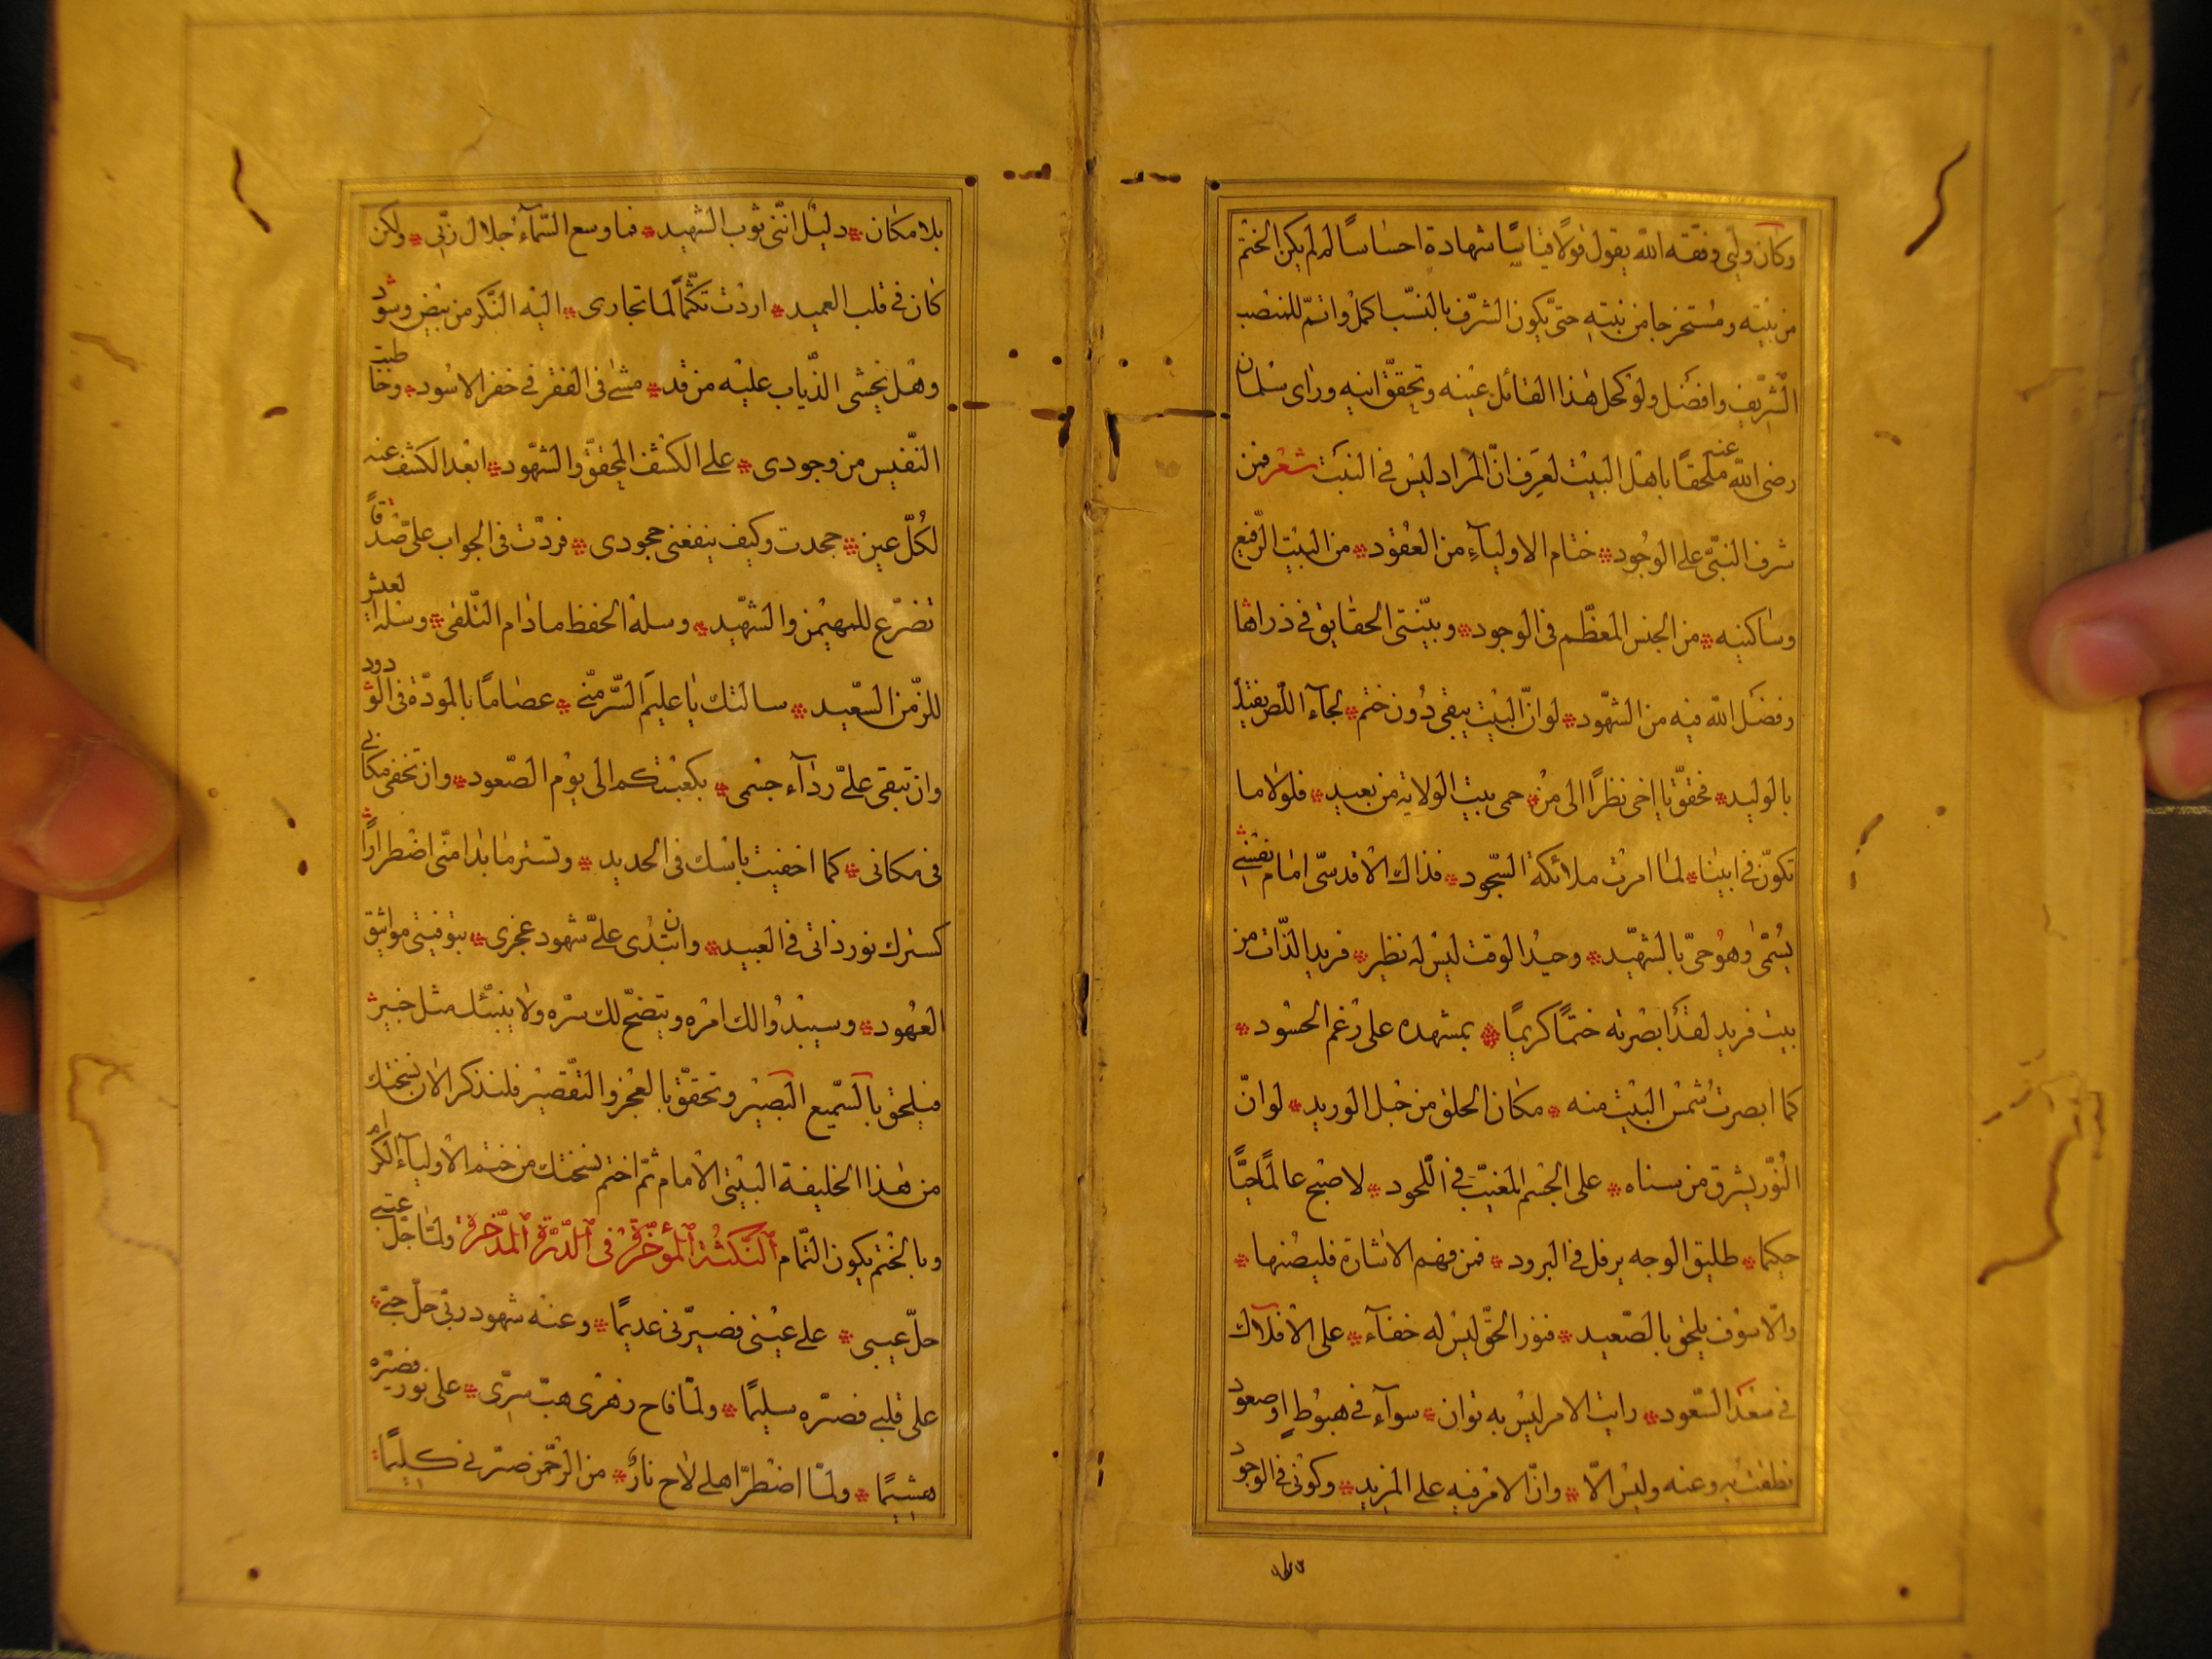 وكان وليي وفقه الله يقول قولا قياسيا شهادة احساسا لم لم يكن الختم
من بيته ومستخرجا من بيته حتى يكون الشرف بالنسب اكمل واتم للمنصب
الشريف وافضل ولو كحل هذا القائل عينه وتحقق اينه وراى سلمان
رضى الله عنه ملحقا باهل البيت لعرف ان المراد ليس فى النبت شعر فمن
شرف النبي على الوجود ختام الاولياء من العقود من البيت الرفيع
وساكنيه من الجنس المعظم فى الوجود وبينتى الحقايق فى ذراها
وفضل الله فيه من الشهود لو ان البيت يبقى دون ختم لجاء اللص يفتك
بالوليد فحقق يا اخى نظرا الى من حمى بيت الولاية من بعيد فلولا ما
تكون فى ابينا لما امرت ملائكة السجود فذاك الاقدسى امام نفسى
يسمى وهو حى بالشهيد وحيد الوقت ليس له نظير فريد الذات من
بيت فريد لقد ابصرته ختما كريما بمشهده على رغم الحسود
كما ابصرت شمس البيت منه مكان الحلق من حبل الوريد لو ان
النور يشرق من سناه على الجسم المغيب فى اللحود لاصبح عالما حيا
حكيما طليق الوجه يرفل فى البرود فمن فهم الاشارة فليصنها
والا سوف يلحق بالصعيد فنور الحق ليس له خفاء على الافلاك
فى سعد السعود رايت الامر ليس به توان سواء فى هبوط او صعود
نطقت به وعنه وليس الا وان الامر فيه على المزيد وكونى فى الوجود
بلا مكان دليل اننى ثوب الشهيد فما وسع السماء جلال ربى ولكن
كان فى قلب العميد اردت تكتما لما تجارى اليه النكر من بيض وسود
وهل يخشى الذياب عليه من قد مشى فى القفر فى خفر الاسود وخاطبت
النفيس من وجودى على الكشف المحقق والشهود ابعد الكشف عنه
لكل عين جحدت وكيف ينفعنى جحودى فردت فى الجواب على صدقا
تضرع للمهيمن والشهيد وسله الحفظ ما دام التلقى وسله لعش
للزمن السعيد سالتك يا عليم السر منى عصاما بالمودة فى الودود
وان تبقى على رداء جسمى بكعبتكم الى يوم الصعود وان تخفى مكانى
فى مكانى كما اخفيت باسك فى الحديد وتستر ما بدا منى اضطرارا
كسترك نور ذاتى فى العبيد وان تبدى على شهود عجزى بتوفيتى مواثيق
العهود وسيبدوا لك امره ويتضح لك سره ولا ينبئك مثل خبير
فيلحق بالسميع البصير وتحقق بالعجز والتقصير فلنذكر الان نسختك
من هذا الخليفة البيتى الامام ثم اختم نسختك من ختم الاولياء الكرام
وبالختم يكون التمام النكتة المؤخرة فى الدرة المدخرة ولما جل عتبى
حل عيبى على عينى فصيرنى عديما وعنه شهود ربى حل جبى
على قلبى فصيره سليما ولما فاح زهرى هب سرى على نور فصيره
هشيما ولما اضطر اهلى لاح نار من الرحمن صيرنى كليما